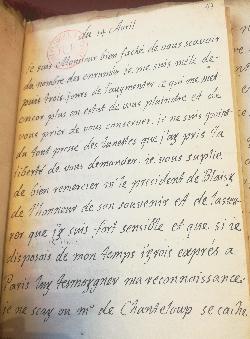 47
du 14 Avril
je suis Monsieur bien faché de vous scavoir
du nombre des enrumés je me suis mélé de-
puis trois jours de l'augmenter ce qui me met
encor plus en estat de vous plaindre et de
vous prier de vous conserver. je ne suis point
du tout pressé des lunettes que j'ay pris la
liberté de vous demander. je vous suplie
de bien remercier mr le president de Blaisy
de l'honneur de son souvenir et de l'asseu-
rer que j'y suis fort sensible et que si je
disposois de mon temps j'irois exprés a
Paris luy tesmoygner ma reconnoissance.
je ne scay ou mr de Chanteloup se cache